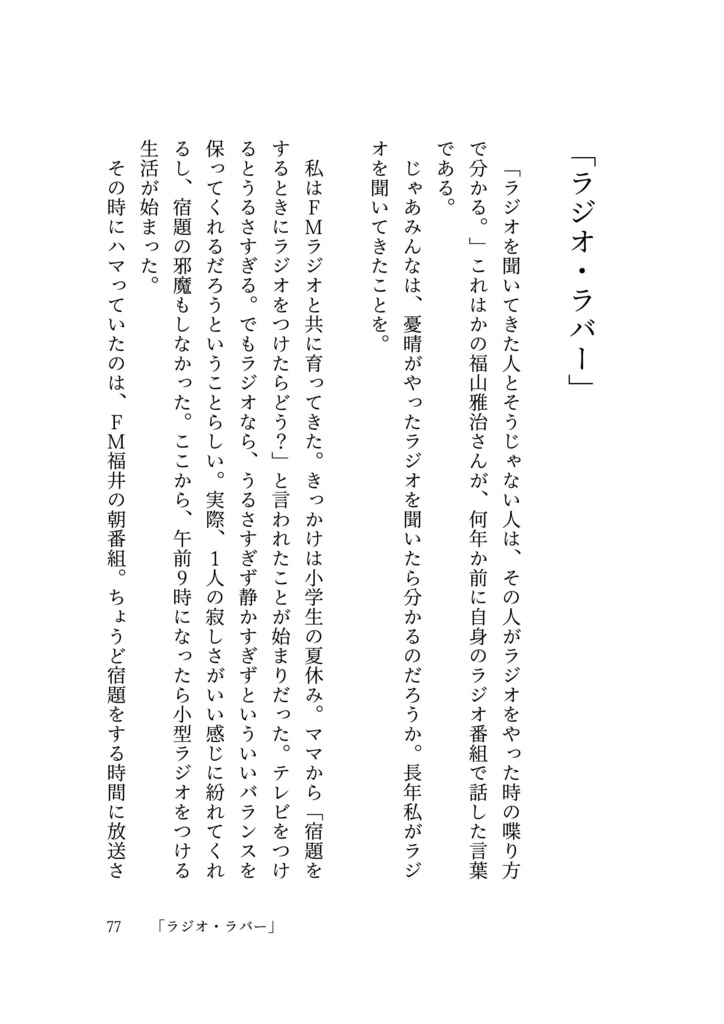 「ラジオ・ラバー」
「ラジオを聞いてきた人とそうじゃない人は、その人がラジオをやった時の喋り方
で分かる。」これはかの福山雅治さんが、何年か前に自身のラジオ番組で話した言葉
である。
じゃあみんなは、憂晴がやったラジオを聞いたら分かるのだろうか。長年私がラジ
オを聞いてきたことを。
私はＦＭラジオと共に育ってきた。きっかけは小学生の夏休み。ママから「宿題を
するときにラジオをつけたらどう？」と言われたことが始まりだった。テレビをつけ
るとうるさすぎる。でもラジオなら、うるさすぎず静かすぎずといういいバランスを
保ってくれるだろうということらしい。実際、１人の寂しさがいい感じに紛れてくれ
るし、宿題の邪魔もしなかった。ここから、午前９時になったら小型ラジオをつける
生活が始まった。
その時にハマっていたのは、ＦＭ福井の朝番組。ちょうど宿題をする時間に放送さ
77 「ラジオ・ラバー」